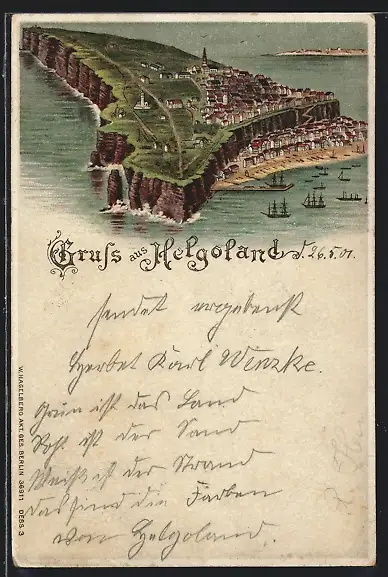 Gruss aus Helgoland, d. 26.5.01.
sendet ergebenst
Herbet Karl Wenzke.
Grün ist das Land
Roht ist der Sand
Weiß ist der Strand
das sind die Farben
von Helgoland.
W. HAGELBERG AKT. GES. BERLIN 36911 DESS. 3